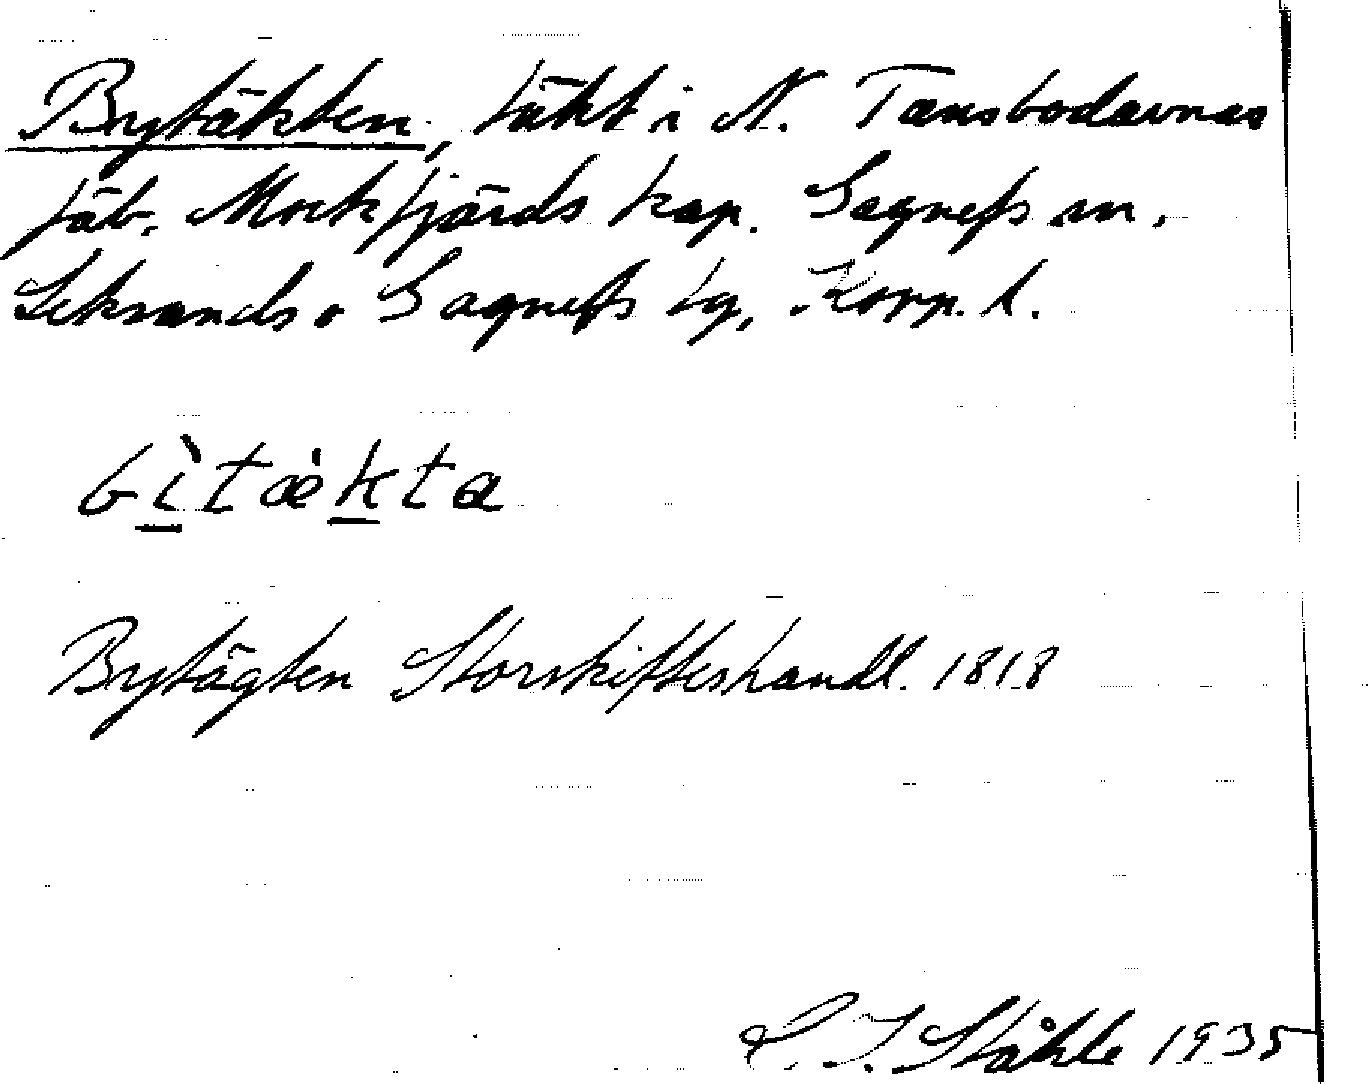 Brytäkten, täkt i N. Tansbodarnas
fäb. Mockfjärds kap. Gagnefs sn.
Leksands o Gagnefs tg, Kopp. l.
bìtækta
Brytägten Storskifteshandl. 1818
C. I. Ståhle 1935